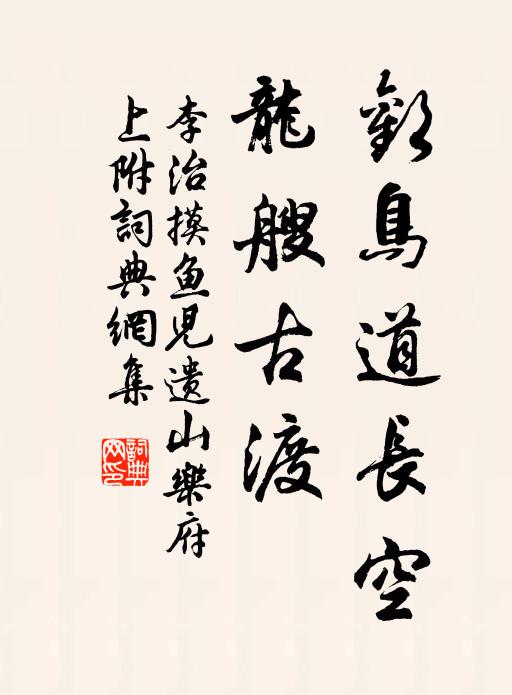 歎鳥道長空
龍艘古渡
李治摸鱼兒遗山樂府
上附詞典網集
詞典
网印